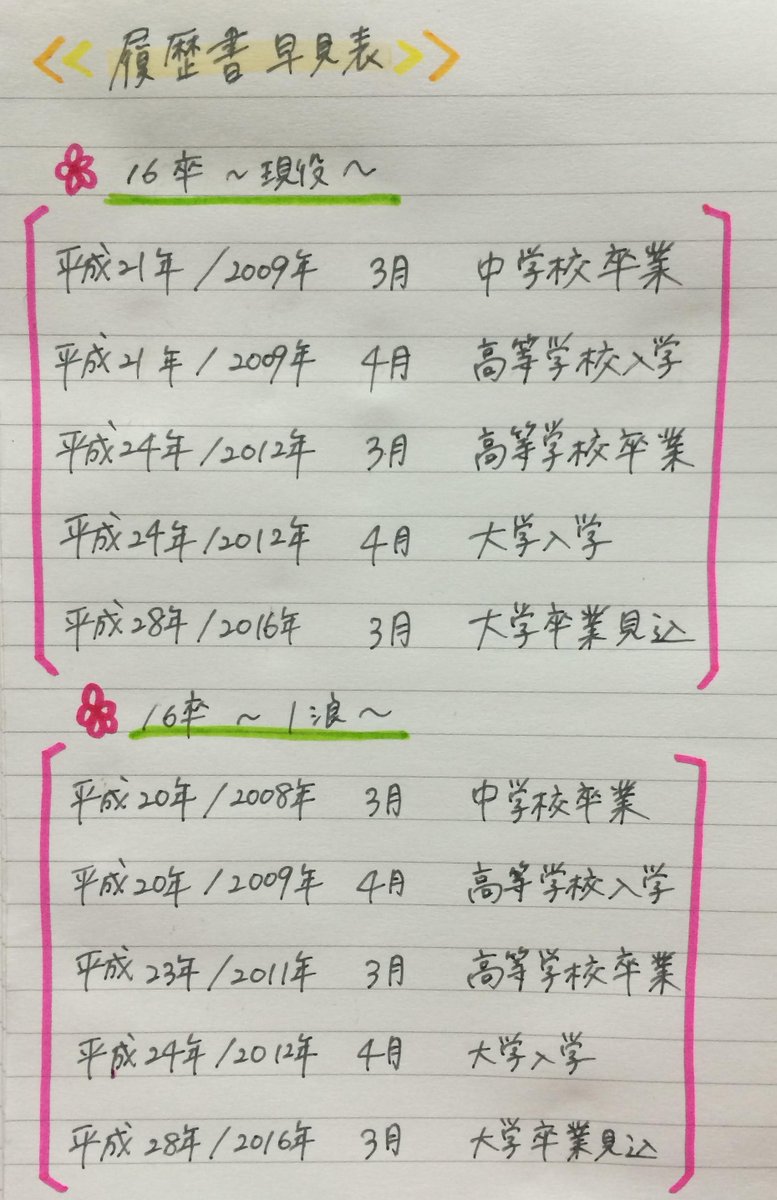 << 履歴書 早見表 >>
16卒 ~現役~
平成21年/2009年 3月 中学校卒業
平成21年/2009年 4月 高等学校入学
平成24年/2012年 3月 高等学校卒業
平成24年/2012年 4月 大学入学
平成28年/2016年 3月 大学卒業見込
16卒 ~1浪~
平成20年/2008年 3月 中学校卒業
平成20年/2009年 4月 高等学校入学
平成23年/2011年 3月 高等学校卒業
平成24年/2012年 4月 大学入学
平成28年/2016年 3月 大学卒業見込